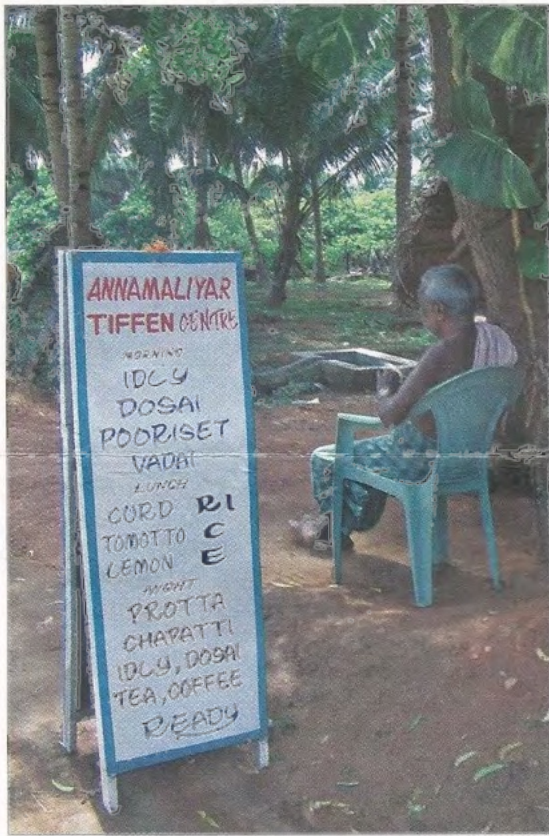 ANNAMALIYAR
TIFFEN CENTRE
MORNING
IDLY
DOSAI
POORISET
VADAI
LUNCH
CURD RI
TOMOTTO C
LEMON E
NIGHT
PROTTA
CHAPATTI
IDLY, DOSAI
TEA, COFFEE
READY